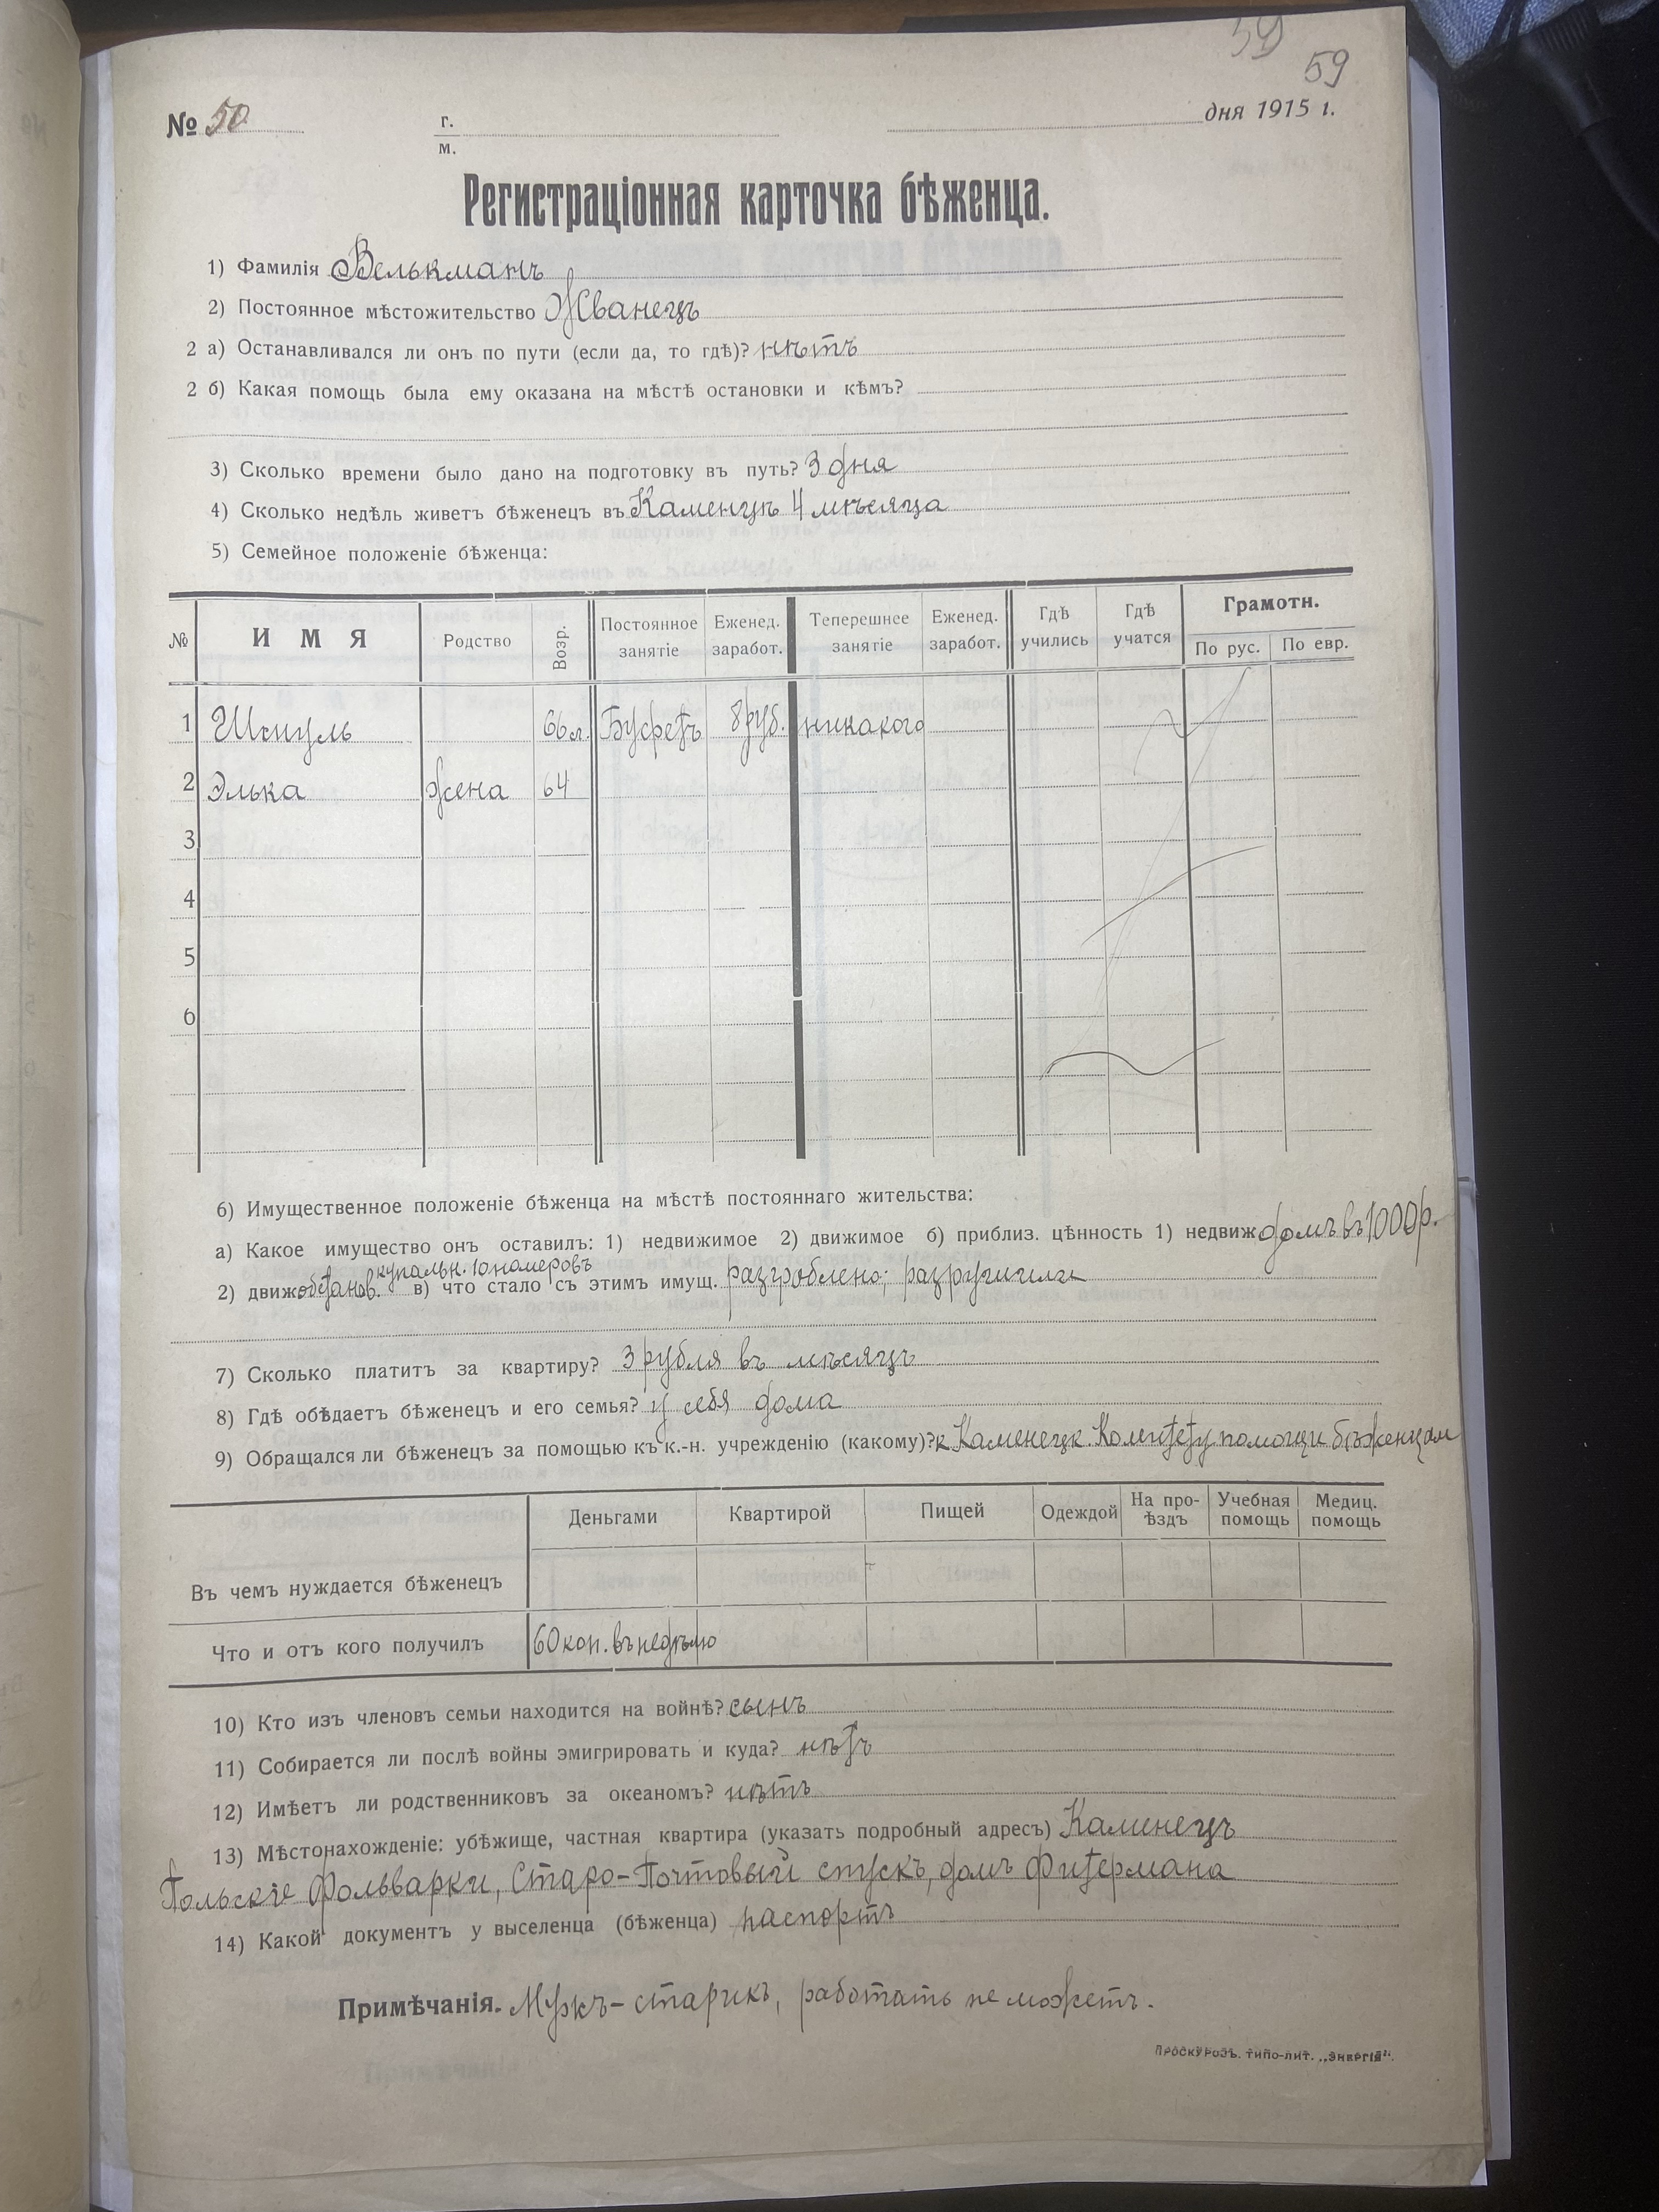 59
59
№ 50 г. м. дня 1915 г.
Регистраціонная карточка бѣженца.
1) Фамилія Велькманъ
2) Постоянное мѣстожительство Жванецъ
2 а) Останавливался ли онъ по пути (если да, то гдѣ)? нѣтъ
2 б) Какая помощь была ему оказана на мѣстѣ остановки и кѣмъ?
3) Сколько времени было дано на подготовку въ путь? 3 дня
4) Сколько недѣль живетъ бѣженецъ въ Каменцѣ 4 мѣсяца
5) Семейное положеніе бѣженца:
№ ИМЯ Родство Возр. Постоянное занятіе Еженед. заработ. Теперешнее занятіе Еженед. заработ. Гдѣ учились Гдѣ учатся Грамотн. По рус. По евр.
1 Шмуль 66 л. Буфетъ 8 руб. никакого
2 Элька жена 64
3
4
5
6
6) Имущественное положеніе бѣженца на мѣстѣ постояннаго жительства:
а) Какое имущество онъ оставилъ: 1) недвижимое 2) движимое б) приблиз. цѣнность 1) недвиж домъ въ 1000 р.
купальн. 10 номеровъ
2) движ обстанов. в) что стало съ этимъ имущ. разграблено; разрушили
7) Сколько платитъ за квартиру? 3 рубля въ мѣсяцъ
8) Гдѣ обѣдаетъ бѣженецъ и его семья? у себя дома
9) Обращался ли бѣженецъ за помощью къ к.-н. учрежденію (какому)? к Каменецк. Комитету помощи бѣженцам
Деньгами Квартирой Пищей Одеждой На про-ѣздъ Учебная помощь Медиц. помощь
Въ чемъ нуждается бѣженецъ
Что и отъ кого получилъ 60 коп. въ недѣлю
10) Кто изъ членовъ семьи находится на войнѣ? сынъ
11) Собирается ли послѣ войны эмигрировать и куда? нѣтъ
12) Имѣетъ ли родственниковъ за океаномъ? нѣтъ
13) Мѣстонахожденіе: убѣжище, частная квартира (указать подробный адресъ) Каменецъ
Польскіе Фольварки, Старо-Почтовый спускъ, домъ Фитермана
14) Какой документъ у выселенца (бѣженца) паспортъ
Примѣчанія. Мужъ - старикъ, работать не можетъ.
ПРОСКУРОВЪ. ТИПО-ЛИТ. „ЭНЕРГІЯ".